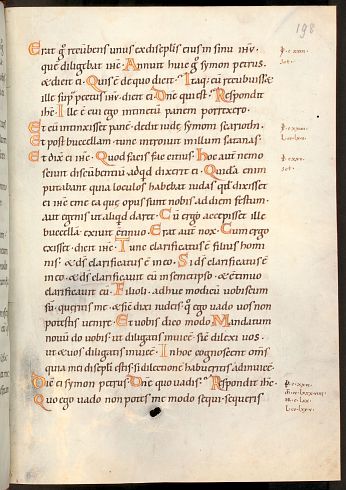 198
Erat g̊ recūbens unus ex discꝑlis eius in sinu ihu᷒
quē diligebat ihc̄. Annuit huic g̊ symon petrus.
& dicit ei. Quis ē de quo dicit. Itaq; cū recubuisset
ille sup̄ pectus ihu᷒. dicit ei. Dn̄e quis est. Respondit
ihc̄. Ille ē cui ego intinctū panem porrexero.
Et cū intinxisset panē. dedit iudę symoni scarioth.
Et post buccellam. tunc introiuit in illum satanas.
Et dic̄ ei ihc̄. Quod facis fac citius. Hoc aut̄ nemo
sciuit discūbentiū ad qd̄ dixerit ei. Quidā enim
putabant quia loculos habebat iudas. qd̄ dixisset
ei ihc̄ eme ea quę opus sunt nobis ad diem festum.
aut egenis ut aliqd̄ daret. Cū ergo accepisset ille
buccellā. exiuit continuo. Erat aut̄ nox. Cum ergo
exisset. dicit ihc̄. Tunc clarificatus ē filius homi
nis. & ds̄ clarificatus ē in eo. Si ds̄ clarificatus ē
in eo. & ds̄ clarificauit eū in semetipso. & continuo
clarificauit eū. Filioli. adhuc modicū uobiscum
sū. queritis me. & sic̄ dixi iudeis. quo ego uado uos non
potestis uenire. Et uobis dico modo. Mandatum
nouū do uobis. ut diligatis inuicē. sic̄ dilexi uos.
ut & uos diligatis inuicē. In hoc cognoscent om̄s
quia mei discipli estis. si dilectionē habueritis adinuicē.
Dic̄ ei symon petrus. Dn̄e quo uadis. Respondit ihc̄.
Quo ego uado non potes me modo sequi. sequeris